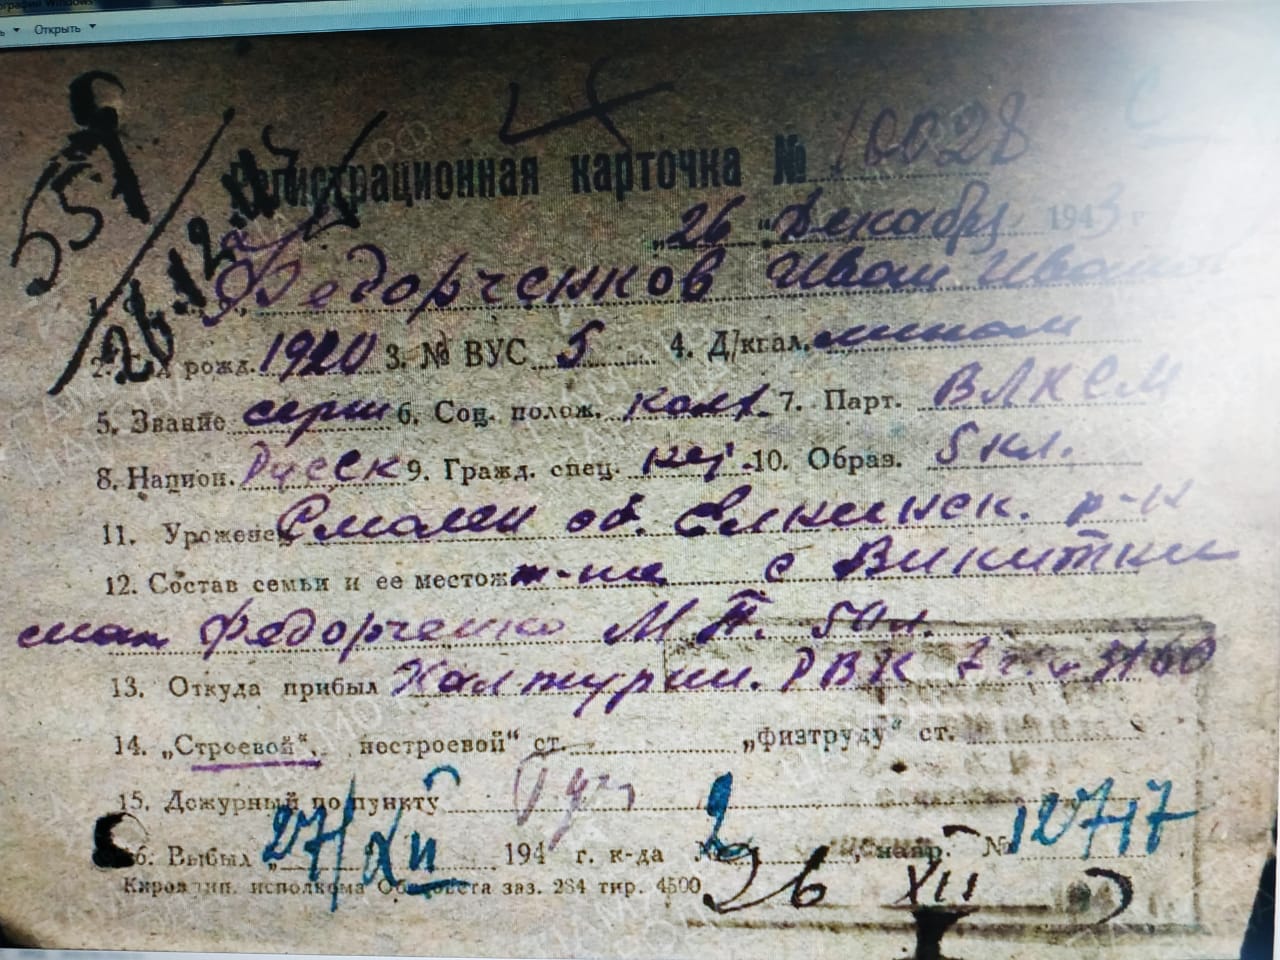 Открыть
557
26.12.43
Регистрационная карточка № 10028
„26" Декабря 1943 г
1. Федорченков Иван Иванов
2. Год рожд. 1920 3. № ВУС 5 4. Д/кгал.
5. Звание серж 6. Соц. полож. колх. 7. Парт. ВЛКСМ
8. Национ. Русск 9. Гражд. спец. 10. Образ. 5 кл.
11. Уроженец Смолен об. Елнинск. р-н
12. Состав семьи и ее местож ж-не с Викитки
мать Федорченко М П. 50 л.
13. Откуда прибыл Халтурин. РВК
14. „Строевой", нестроевой" ст. „физтруду" ст.
15. Дежурный по пункту
16. Выбыл „27/XII 194 г. к-да № 2, напр. № 12717
Киров тип. исполкома Облсовета заз. 284 тир. 4500
26 XII